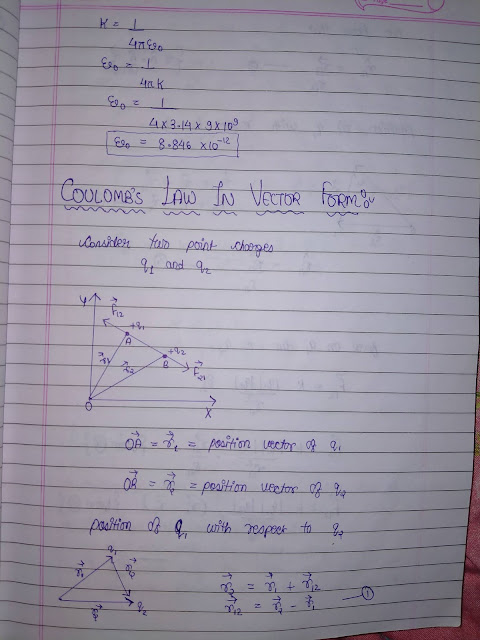 K = 1
4πε₀
ε₀ = 1
4πK
ε₀ = 1
4×3.14×9×10⁹
ε₀ = 8.846 ×10⁻¹²
COULOMB'S LAW IN VECTOR FORM:-
Consider two point charges
q₁ and q₂
Y
F⃗₁₂
+q₁
A
+q₂
B
r⃗₁
r⃗₂
F⃗₂₁
O
X
OA⃗ = r⃗₁ = position vector of q₁
OB⃗ = r⃗₂ = position vector of q₂
position of q₁ with respect to q₂
q₁
r⃗₁
r⃗₁₂
r⃗₂
q₂
r⃗₂ = r⃗₁ + r⃗₁₂
r⃗₁₂ = r⃗₂ - r⃗₁ — ①